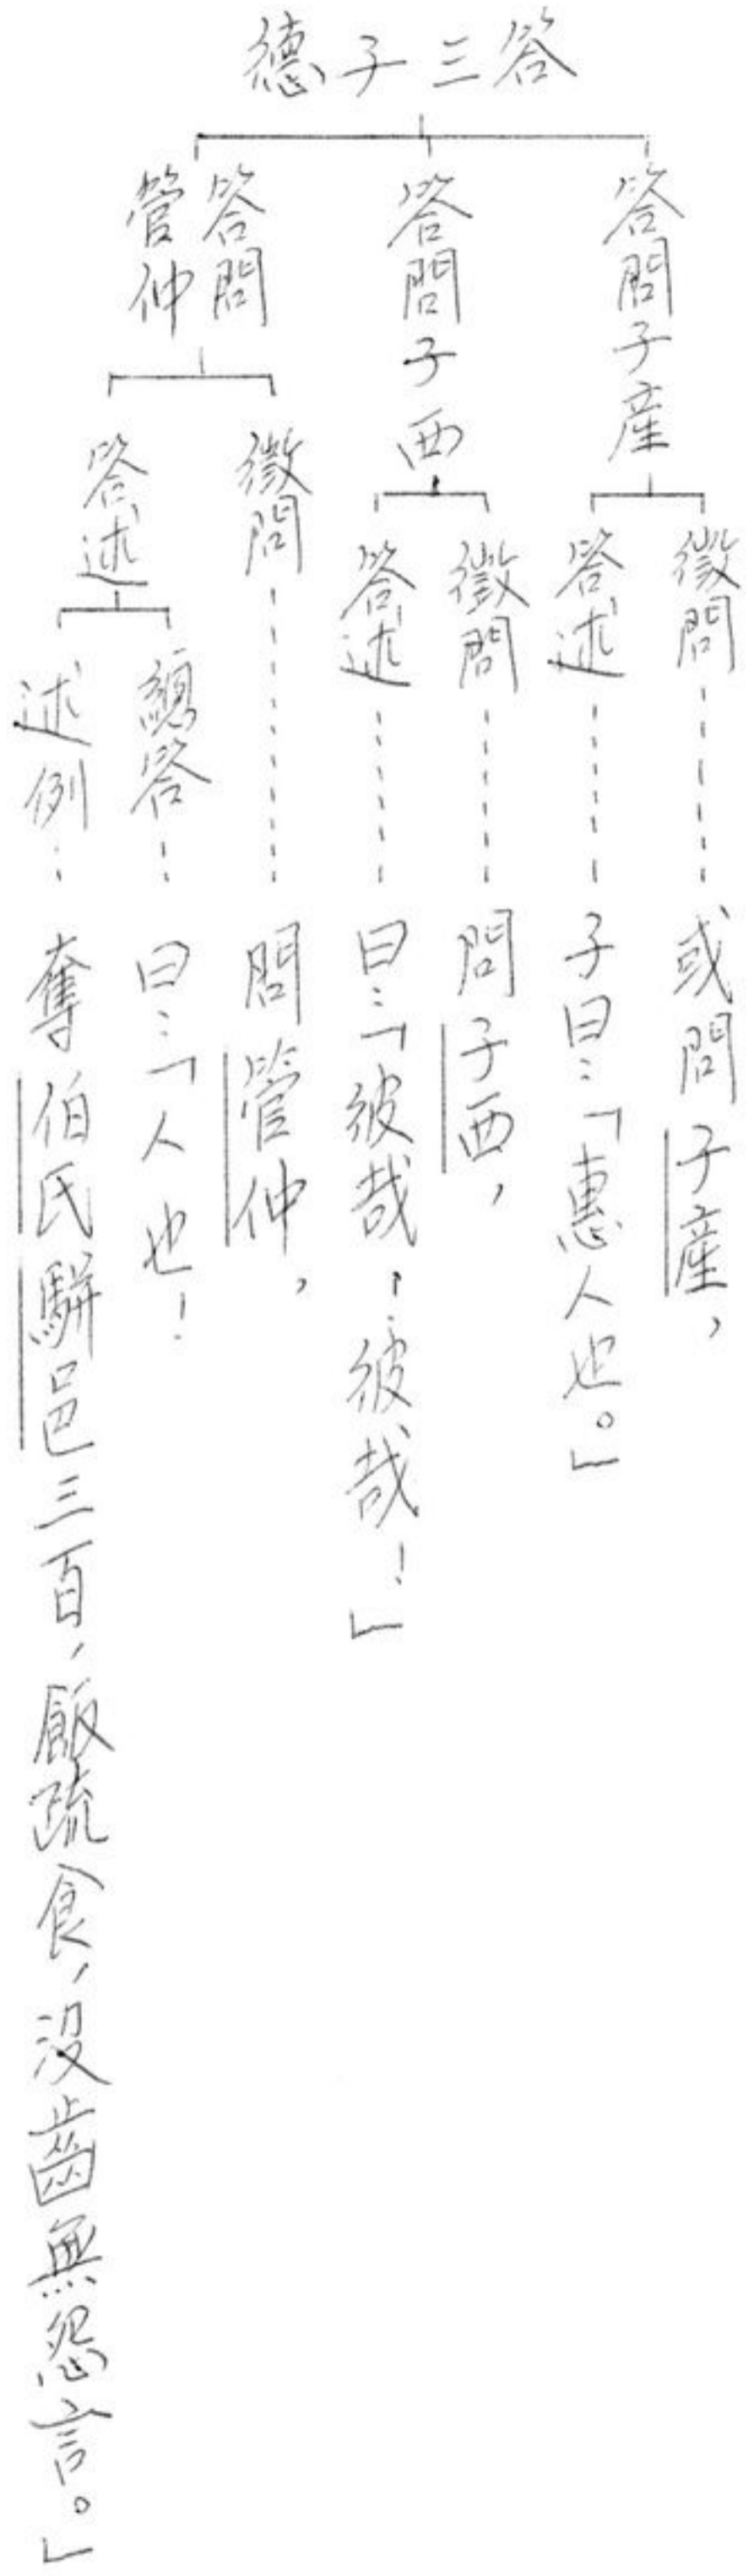 德子三答
答問子產
徵問
或問子產，
答述
子曰：「惠人也。」
答問子西
徵問
問子西，
答述
曰：「彼哉，彼哉！」
答問
管仲
徵問
問管仲，
答述
總答
曰：「人也！
述例
奪伯氏駢邑三百，飯疏食，沒齒無怨言。」